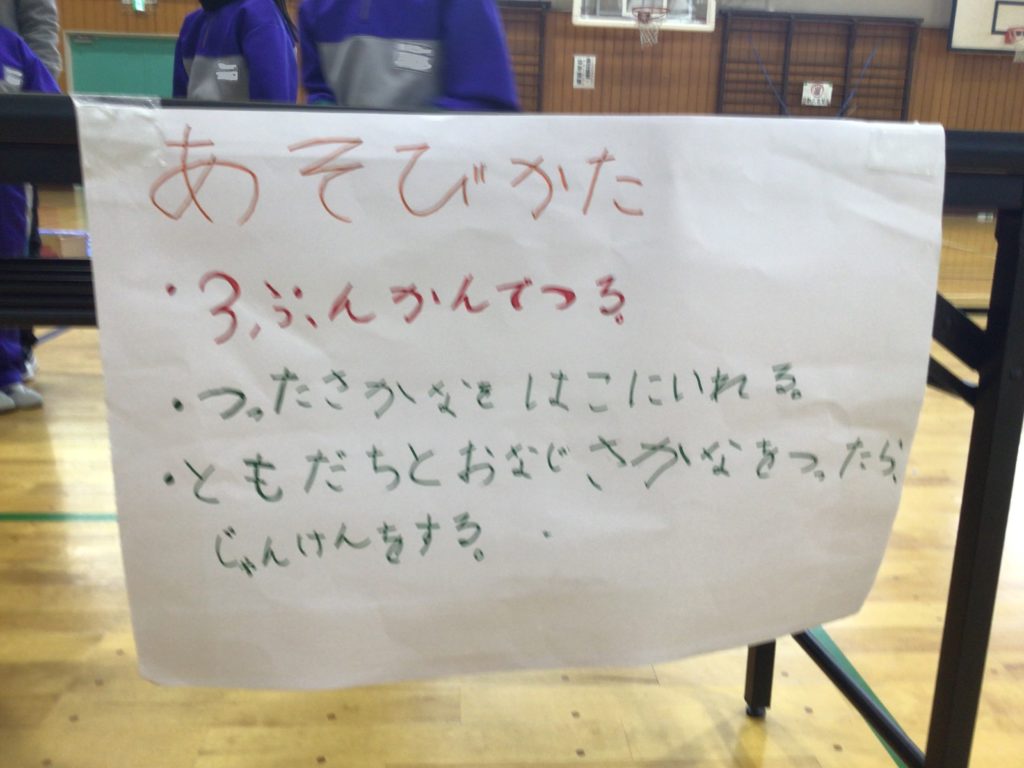 あそびかた
・3ぷんかんでつる。
・つったさかなをはこにいれる。
・ともだちとおなじさかなをつったら、
じゃんけんをする。